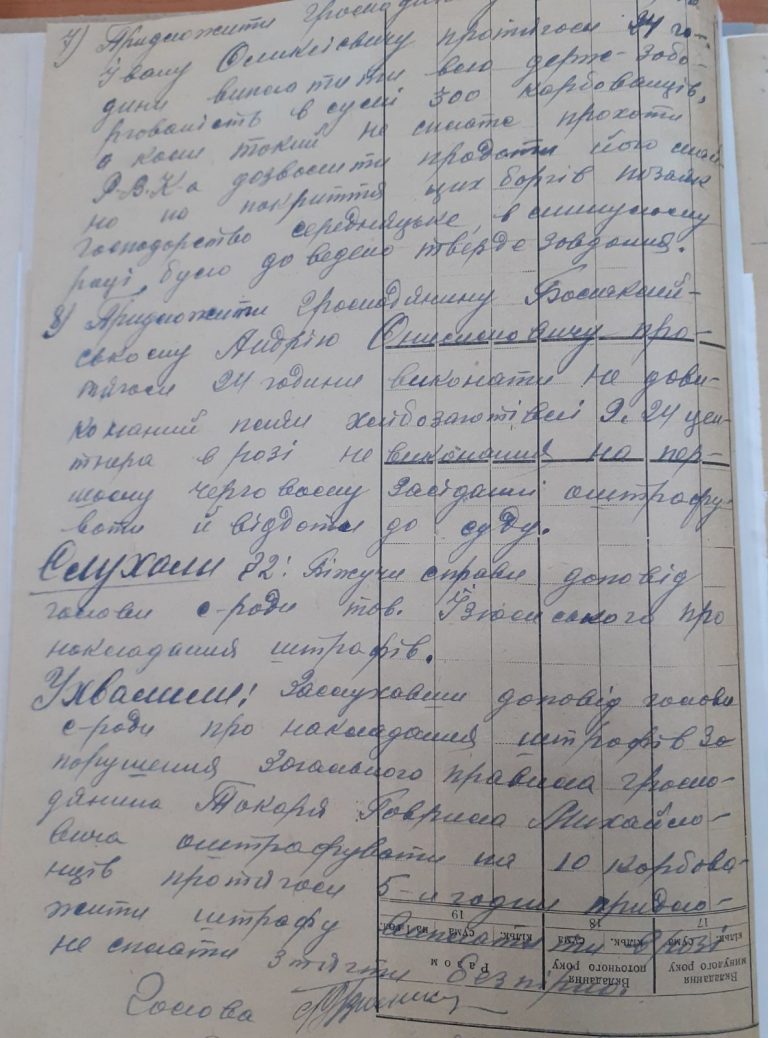 7) Придложити громадян
Івану Оликсієвичу протягом 24 го-
дини виплатити всю держ-забо-
ргованість в сумі 300 карбованців,
а коли такий не сплате прохати
Р.В.К-а дозволити продати його май-
но на покриття цих боргів позаяк
господарство середняцьке, в минулому
році було доведено тверде завдання.
8) Придложити громадянину
ському Андрію Онисимовичу про-
тягом 24 години виконати не дови-
конаний план хлібозаготівлі 9. 24 цен-
тнера в розі не виконання на пер-
шому черговому засіданні оштрафу-
вати й віддати до суду.
Слухали §2: Біжучи справи доповід
голови с-ради тов. про
накладання штрафів.
Ухвалили: Заслухавши доповід голови
с-ради про накладання штрафів за
порушення загального правила грома-
дянина Токаря Гаврила Михайло-
вича оштрафувати на 10 карбова-
нців протягом 5-и годин придло-
жити штрафу сплатити в розі
не сплати з тягти безпірно.
Голова
17
Вкладання минулого року
кільк. сума
18
Вкладання поточного року
кільк. сума
19
Разом
кільк. сума на 1 кол.